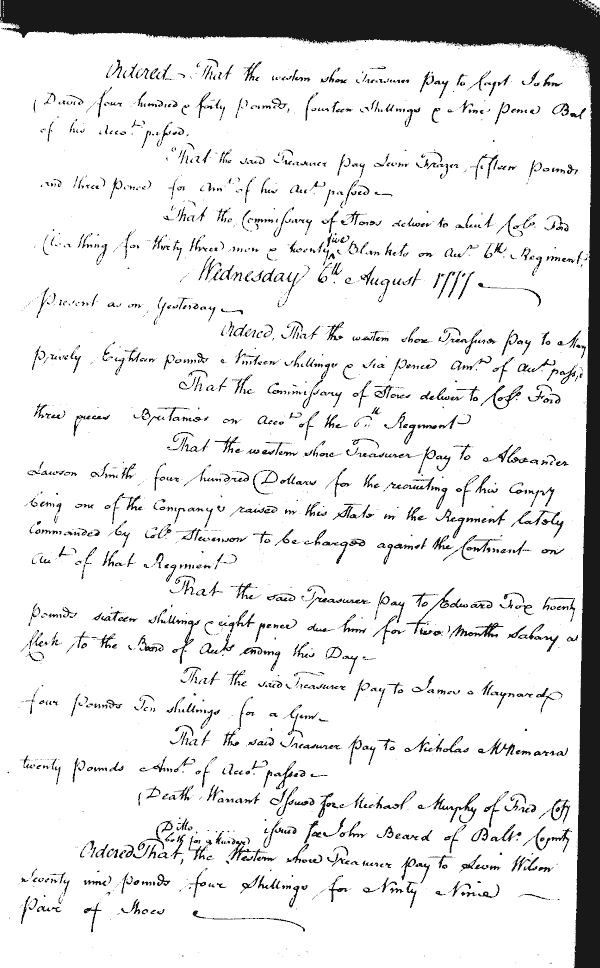 Ordered That the western shore Treasurer pay to Capt John
David four hundred & forty Pounds, fourteen Shillings & Nine pence Bal
of his Accot. passed.
That the said Treasurer Pay Levin Frazer, fifteen Pounds
and three Pence for Amt. of his Acct. passed
That the Commissary of Stores deliver to Lieut Colo. Ford
Cloathing for thirty three men & twenty five Blankets on Acct. 6th. Regiment.
Wednesday 6th. August 1777
Present as on Yesterday
Ordered, That the western shore Treasurer pay to Mary
Prively Eighteen Pounds Nineteen Shillings & six pence Amt. of Acct. passed
That the Commissary of Stores deliver to Colo. Ford
three pieces Britanies on Accot. of the 6th Regiment
That the western shore Treasurer pay to Alexander
Lawson Smith four hundred Dollars for the recruiting of his Compy
being one of the Company's raised in this State in the Regiment lately
Commanded by Colo. Stevenson to be charged against the Continent on
Acct. of that Regiment
That the said Treasurer Pay to Edward Fox twenty
Pounds sixteen shillings & eight pence due him for two Months Salary as
Clerk to the Board of Auds ending this Day
That the said Treasurer pay to James Maynard
four Pounds Ten shillings for a Gun
That the said Treasurer Pay to Nicholas McNemarra
twenty Pounds Amot. of Accot. passed
Death Warrant Issued for Michael Murphy of Fred Coty
Ditto issued for John Beard of Balt. County
both for a Murder
Ordered That, the Western shore Treasurer pay to Levin Wilson
Seventy nine Pounds four Shillings for Ninty Nine
Pair of Shoes